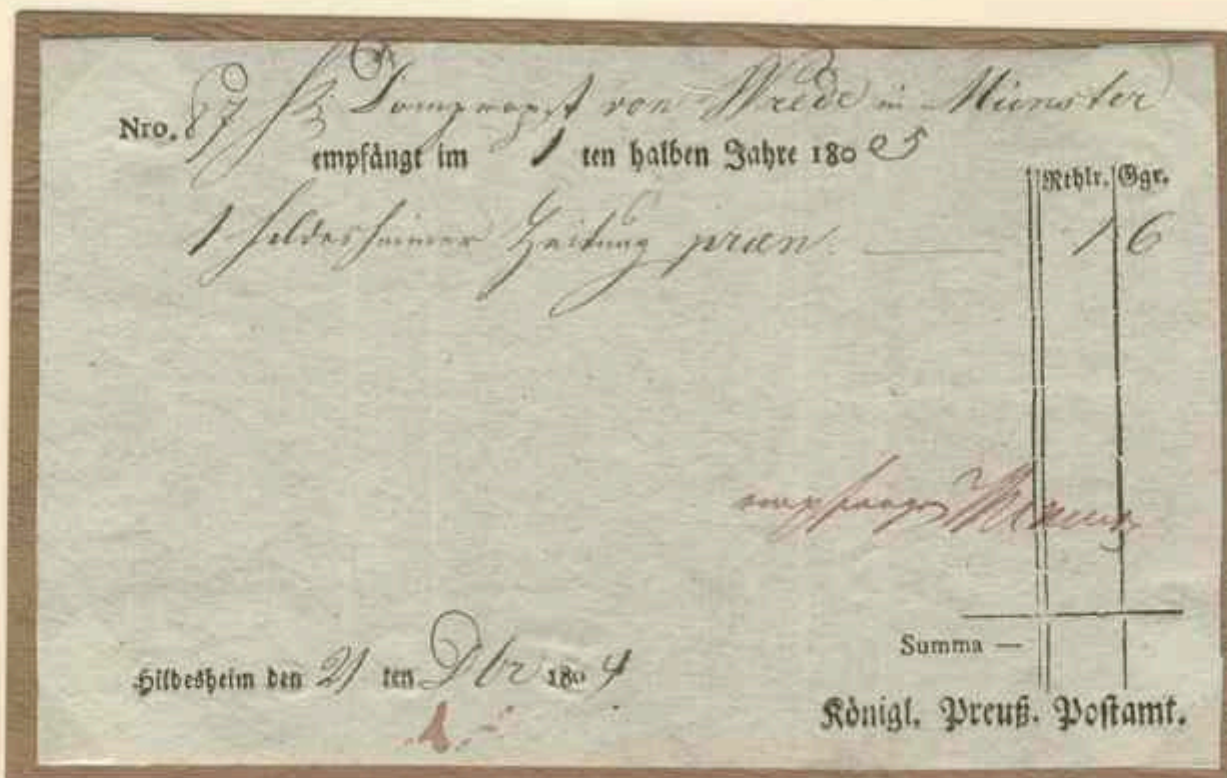 Nro. 87 H. Dompropst von Wrede in Münster
empfängt im 1 ten halben Jahre 1805
Rthlr. Ggr.
1 Hildesheimer Zeitung præn. — 1 6
empfangen
Summa —
Hildesheim den 21 ten Dbr 1804
Königl. Preuß. Postamt.